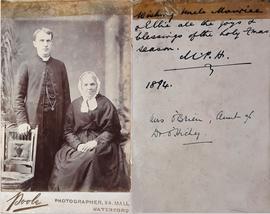 Wishing Uncle Maurice
& Ellie all the joys &
blessings of the holy Xmas
season.
M P. H.
1894.
Mrs O'Brien, Aunt of
Dr O'Hickey
Poole
PHOTOGRAPHER, 34. MALL
WATERFORD